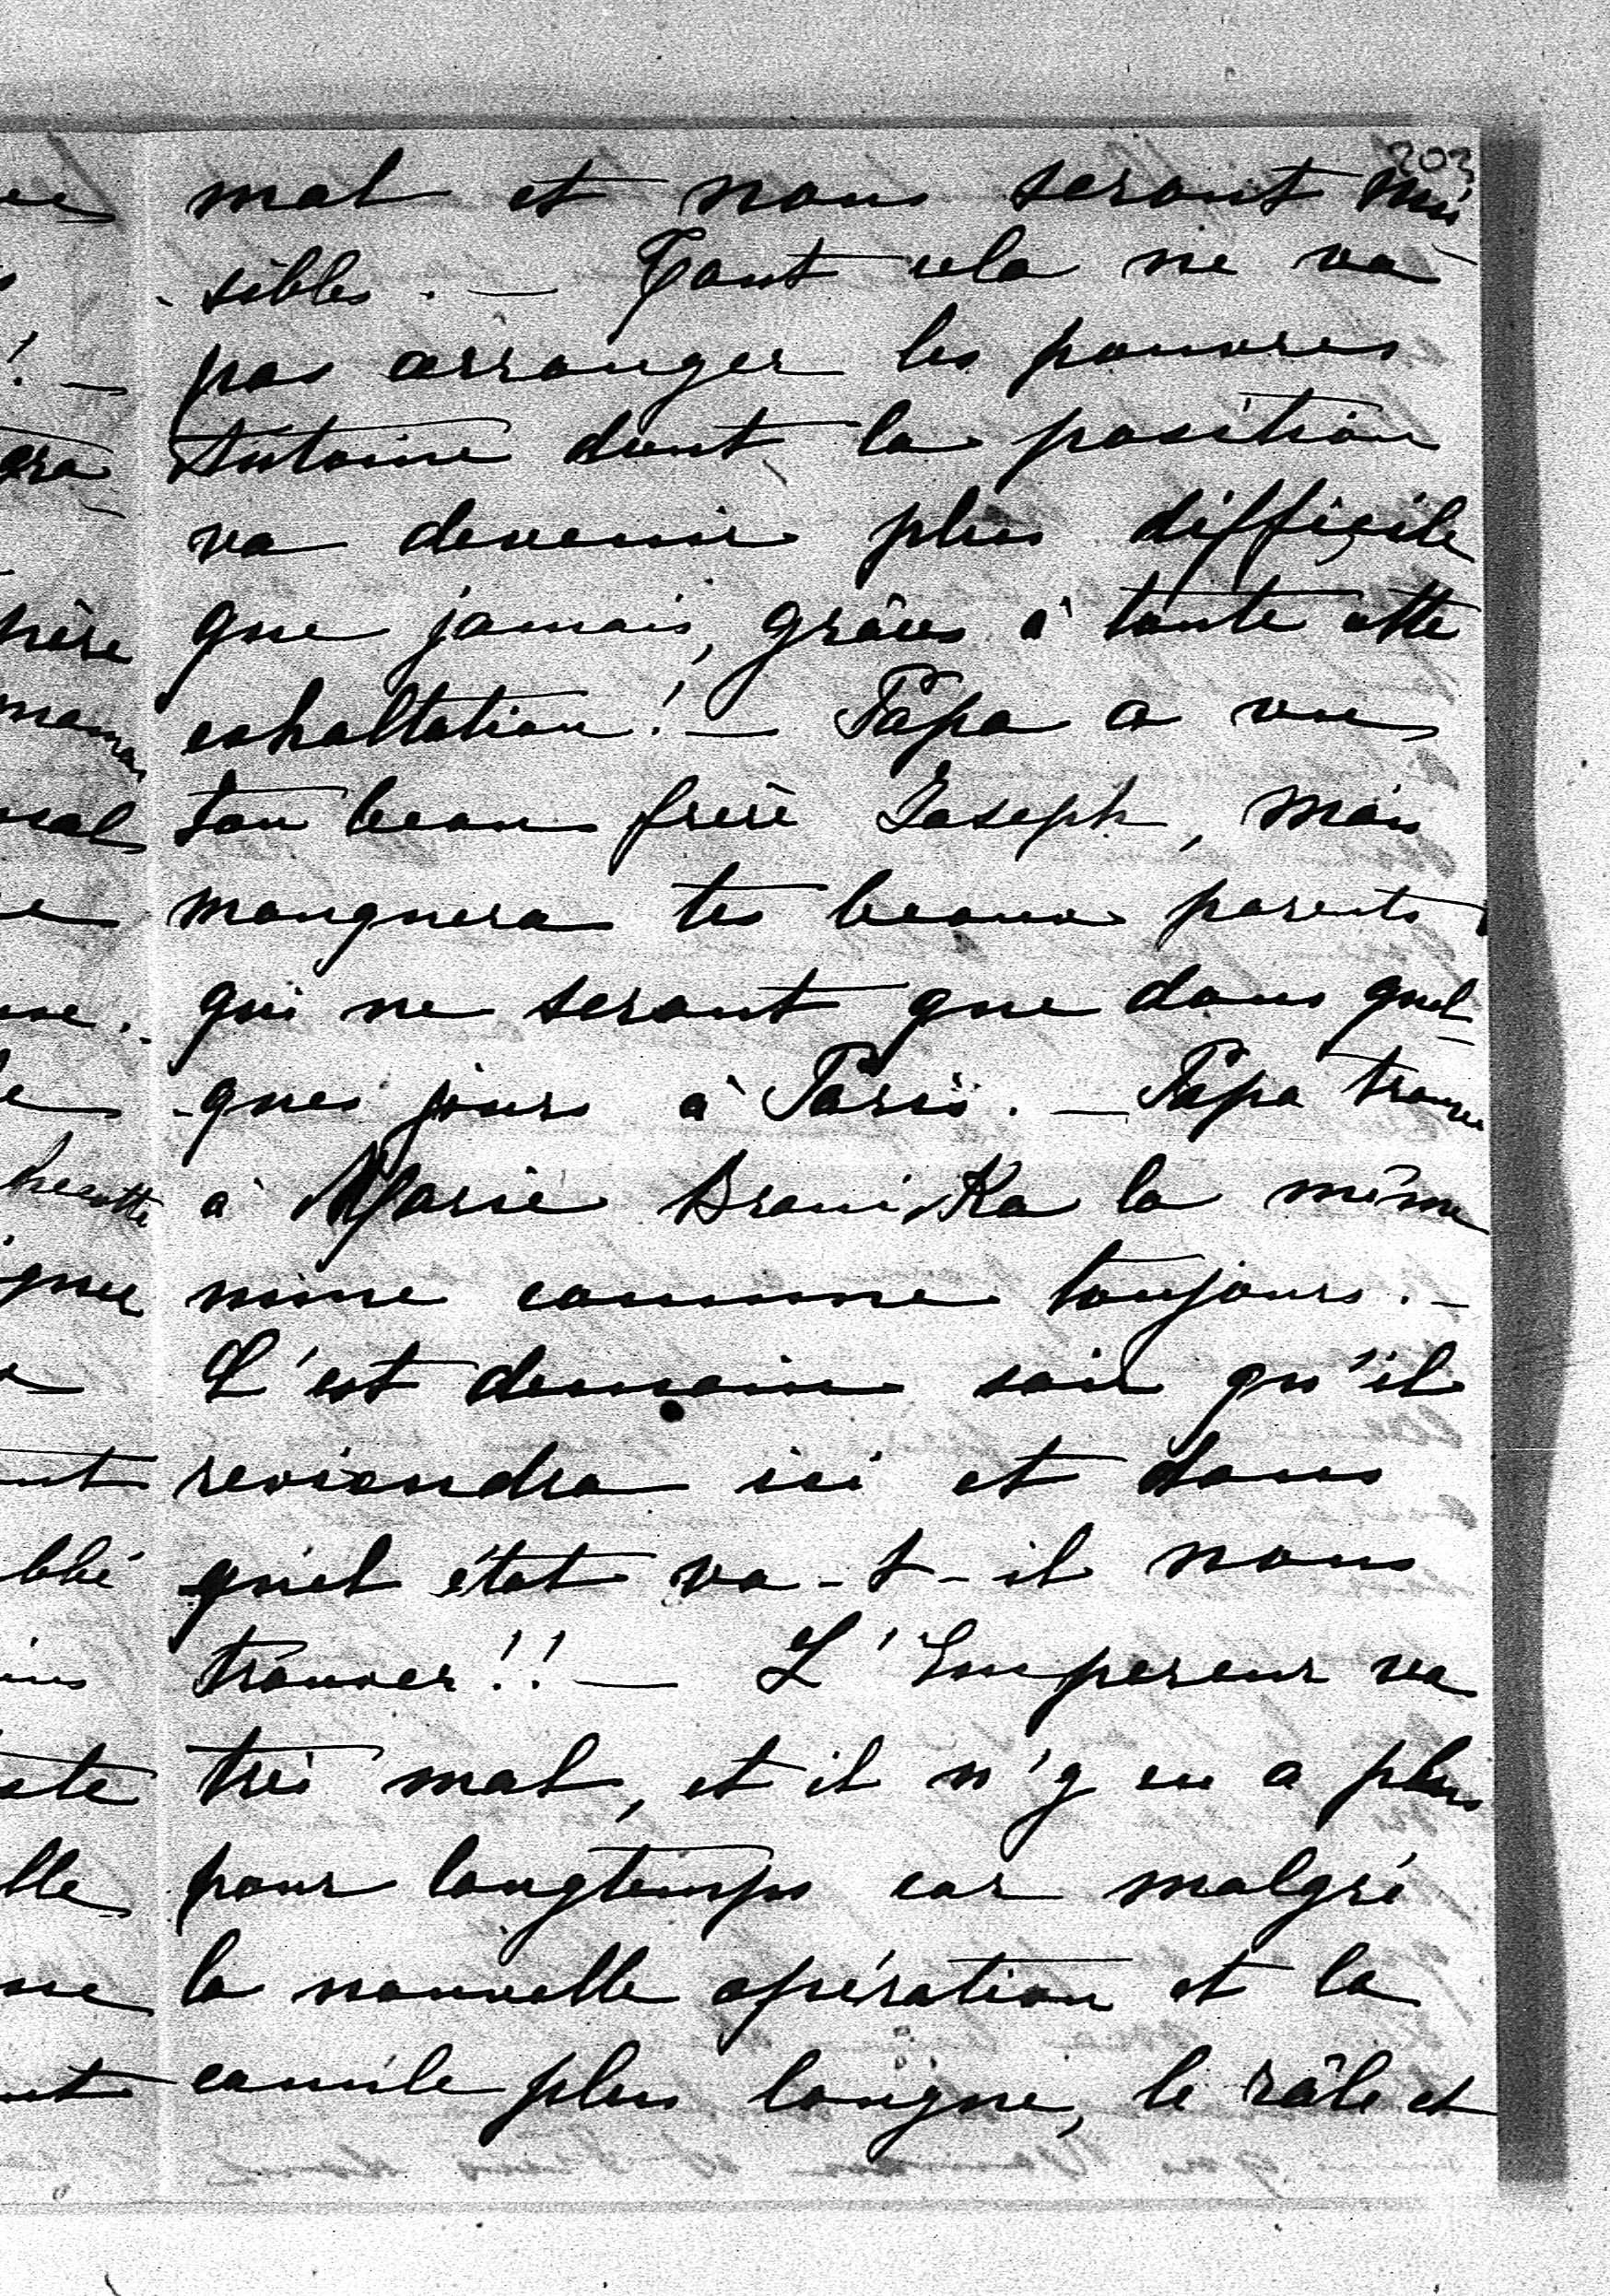 203
mal et nous seront nui
-sibles. — Tout cela ne va
pas arranger les pauvres
Antoine dont la position
va devenir plus difficile
que jamais, grâces à toute cette
exhaltation! — Papa a vu
ton beau frère Joseph, mais
manquera tes beaux parents
qui ne seront que dans quel-
-ques jours à Paris. — Papa trouve
à Marie Braniçka la même
mine comme toujours. —
C'est demain soir qu'il
reviendra ici et dans
quel état va-t-il nous
trouver!! — L'Empereur va
très mal, et il n'y en a plus
pour longtemps car malgré
la nouvelle opération et la
canule plus longue, le râle et